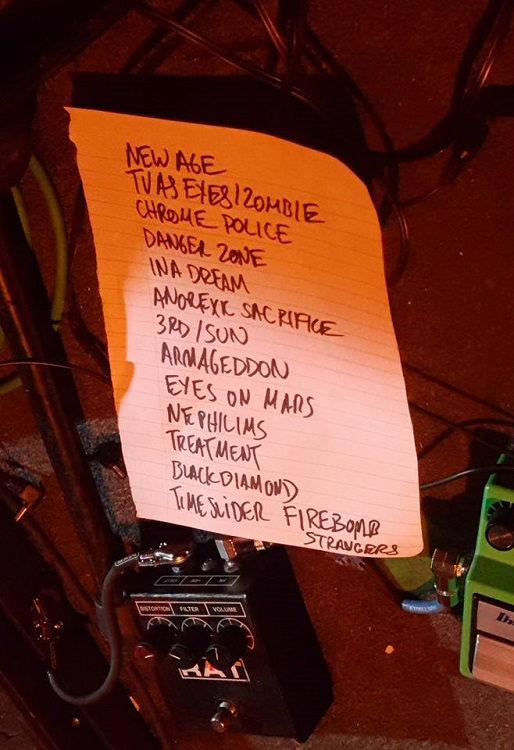 NEW AGE
TV AS EYES / ZOMBIE
CHROME POLICE
DANGER ZONE
IN A DREAM
ANOREXIC SACRIFICE
3RD / SUN
ARMAGEDDON
EYES ON MARS
NEPHILIMS
TREATMENT
BLACK DIAMOND
TIMESLIDER FIREBOMB
STRANGERS
DISTORTION FILTER VOLUME
RAT